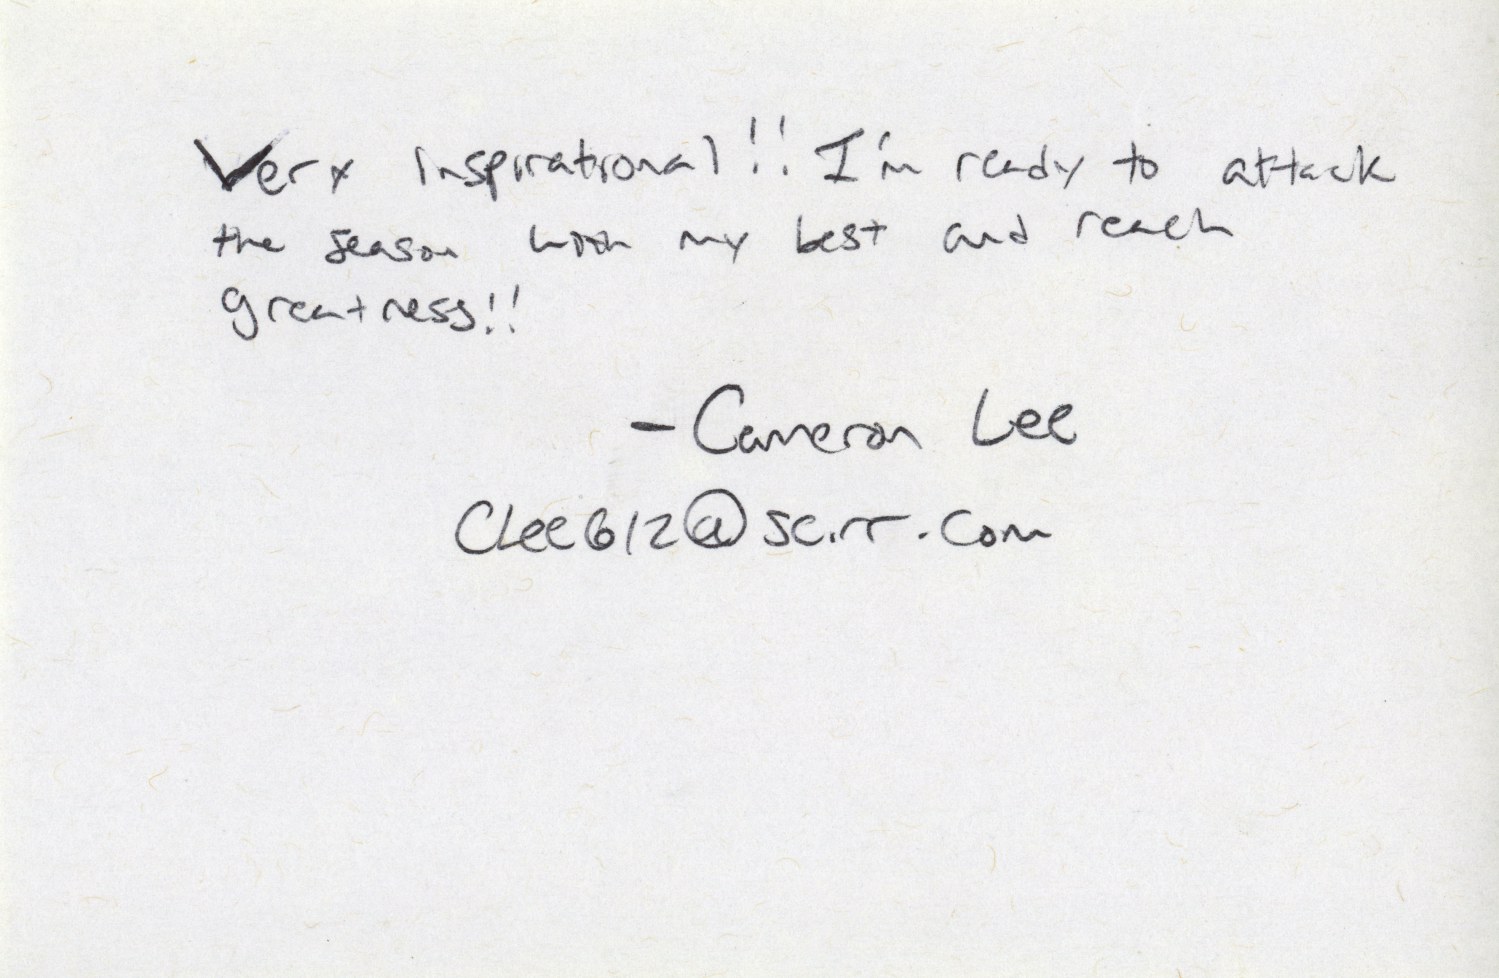 Very Inspirational!! I'm ready to attack
the season with my best and reach
greatness!!
- Cameron Lee
CLee612@sc.rr.com